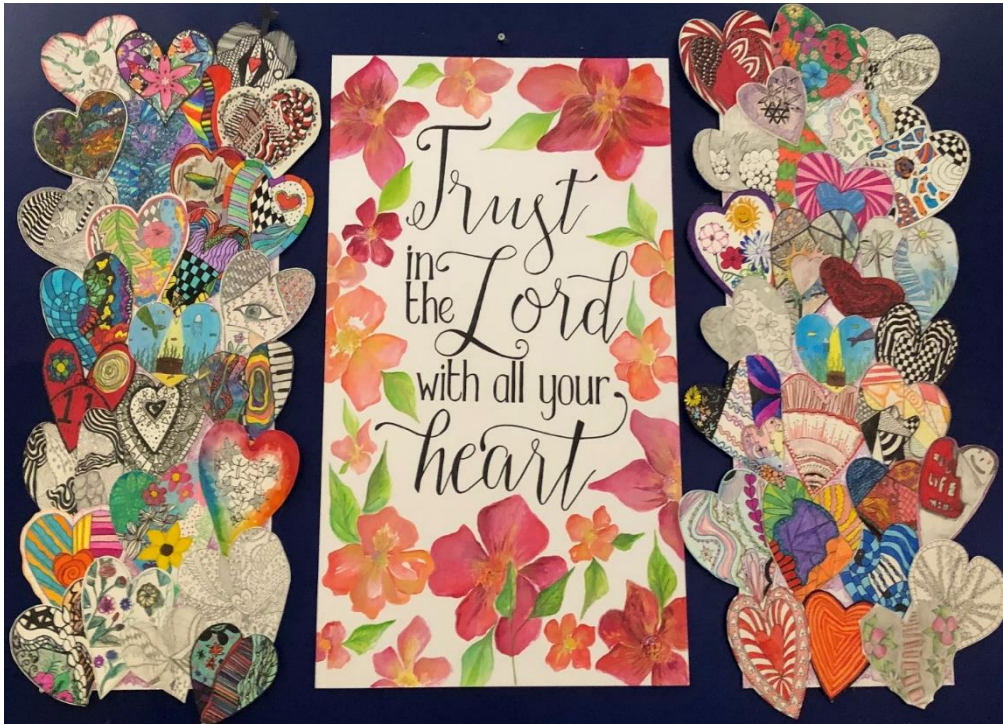 Trust
in
the Lord
with all your
heart
11
LIFE